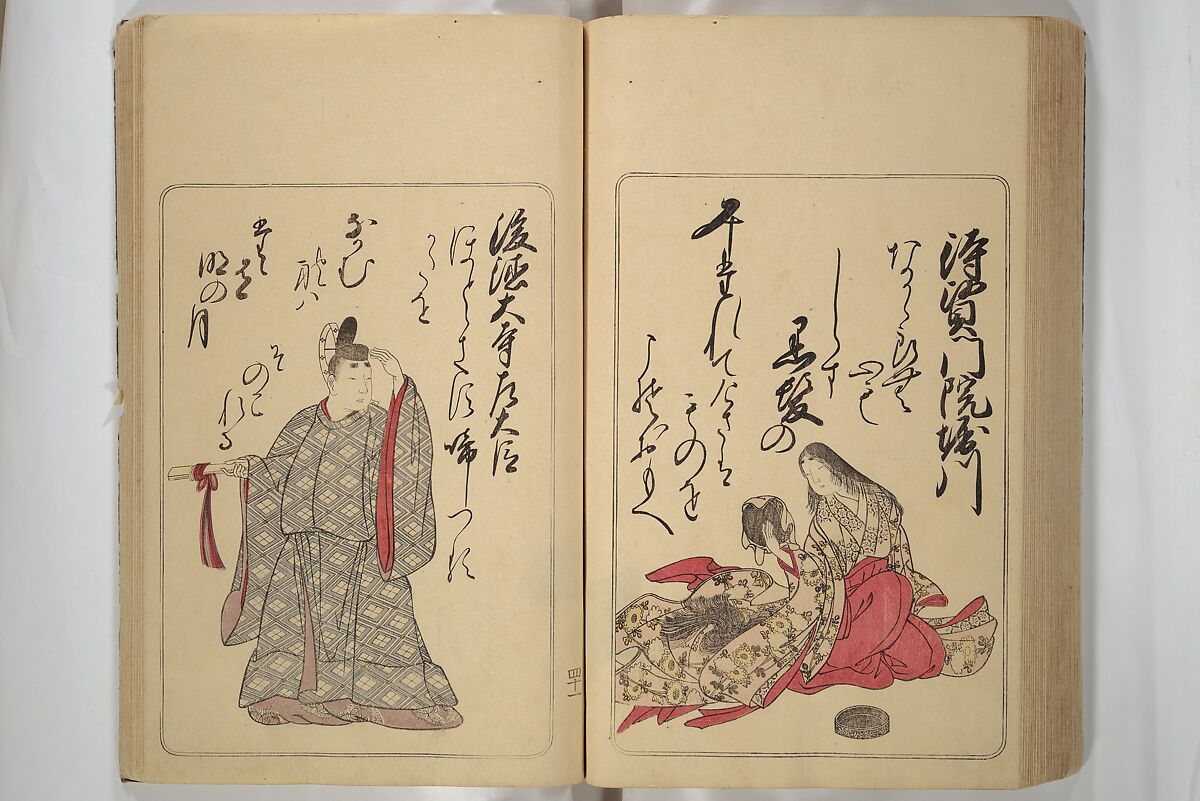 待賢門院堀川
なかゝらむ
心も
しらす
黒髪の
みたれてけさは
ものを
こそおもへ
後徳大寺左大臣
ほとゝきす啼つる
かたを
なかむ
れは
たゝ
有
明の
月
そ
のこ
れる
四十一